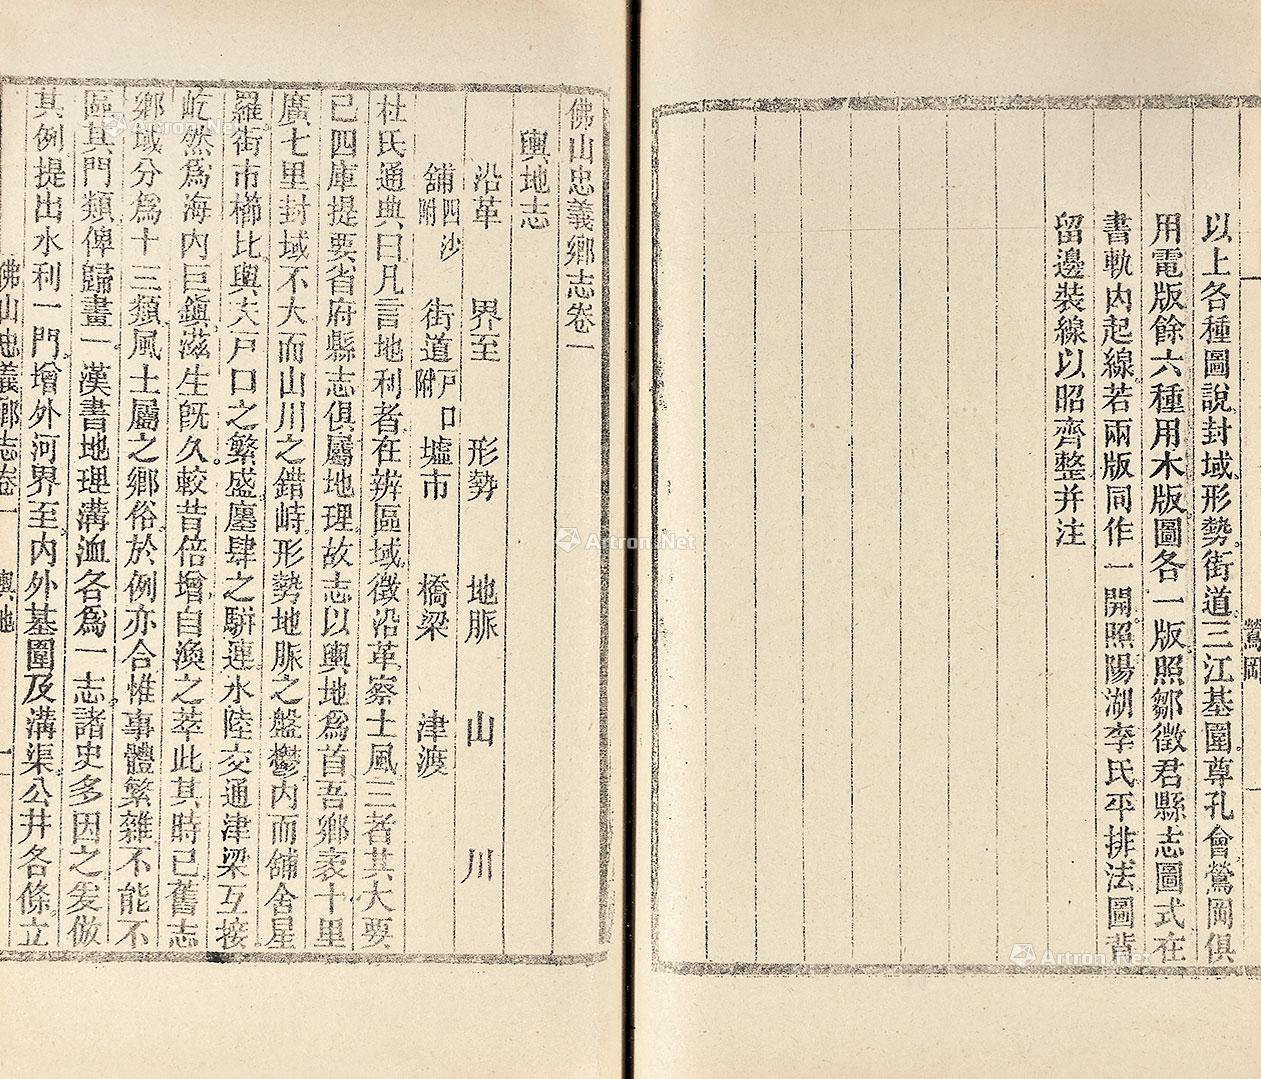 鶯岡
以上各種圖說封域形勢街道三江基圍尊孔會鶯岡俱
用電版餘六種用木版圖各一版照鄒徵君縣志圖式在
書軌內起線若兩版同作一開照陽湖李氏平排法圖背
留邊裝線以昭齊整并注
佛山忠義鄉志卷一
輿地志
沿革 界至 形勢 地脈 山川
舖四沙附 街道戶口附 墟市 橋梁 津渡
杜氏通典曰凡言地利者在辨區域徵沿革察土風三者其大要
已四庫提要省府縣志俱屬地理故志以輿地爲首吾鄉袤十里
廣七里封域不大而山川之錯峙形勢地脈之盤鬱內而舖舍星
羅街市櫛比與夫戶口之繁盛廛肆之駢連水陸交通津梁互接
屹然爲海內巨鎭滋生旣久較昔倍增自渙之萃此其時已舊志
鄉域分爲十三類風土屬之鄉俗於例亦合惟事體繁雜不能不
區其門類俾歸畫一漢書地理溝洫各爲一志諸史多因之爰倣
其例提出水利一門增外河界至內外基圍及溝渠公井各條立
佛山忠義鄉志卷一 輿地 一
Artron.Net
Artron.Net
Artron.Net